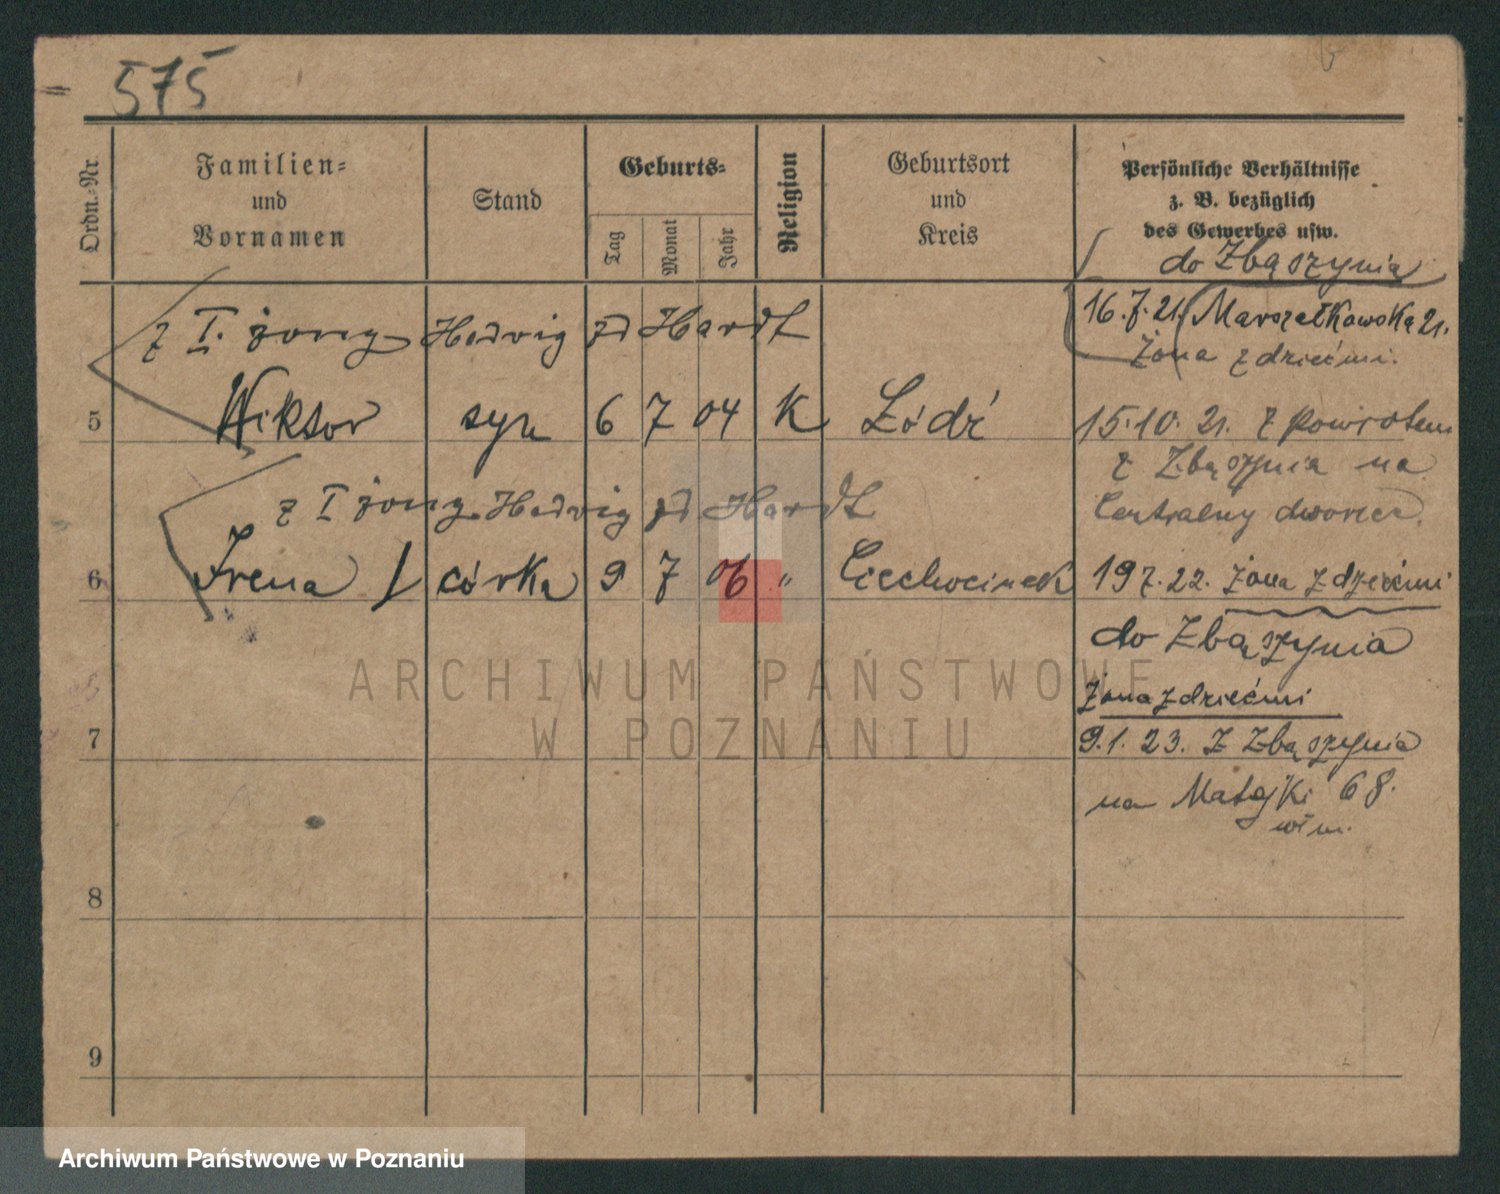 575
Ordn.-Nr.
Familien-
und
Vornamen
Stand
Geburts-
Tag
Monat
Jahr
Religion
Geburtsort
und
Kreis
Persönliche Verhältnisse
z. B. bezüglich
des Gewerbes usw.
do Zbąszynia
z I. żony Hedwig zd Hardt
16.7.21. Marszałkowska 21.
żona z dziećmi.
5 Wiktor syn 6 7 04 K Łódź
15.10. 21. z powrotem
z Zbąszynia na
z I żony Hedwig zd Hardt
Centralny dworzec.
6 Irena córka 9 7 06 " Ciechocinek
19 7. 22. żona z dziećmi
do Zbąszynia
żona z dziećmi
7
9.1. 23. z Zbąszynia
na Matejki 68.
8
9
ARCHIWUM PAŃSTWOWE
W POZNANIU
Archiwum Państwowe w Poznaniu